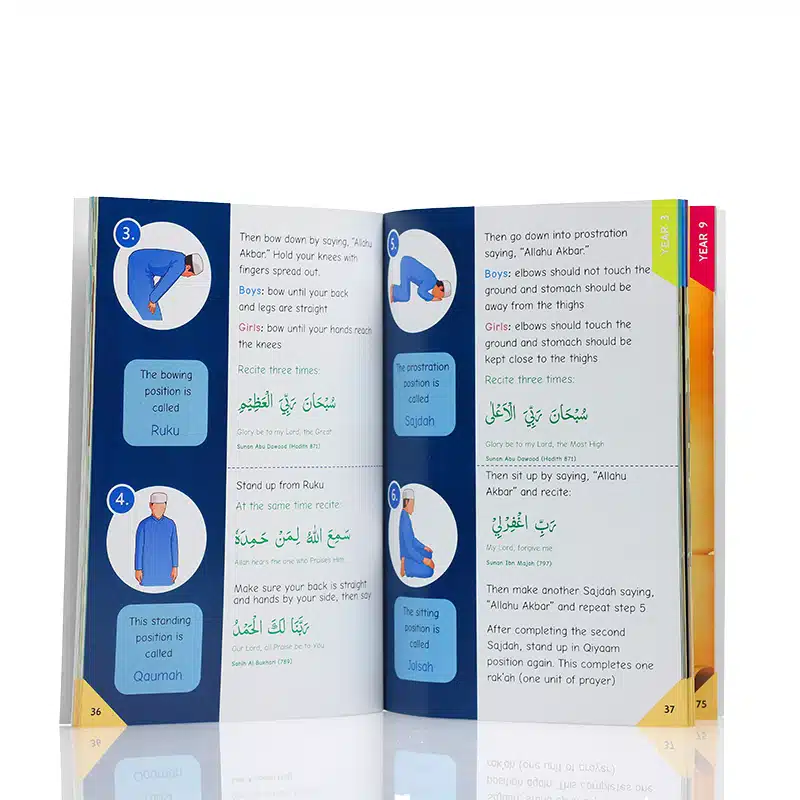 3.
The bowing
position is
called
Ruku
Then bow down by saying, "Allahu
Akbar." Hold your knees with
fingers spread out.
Boys: bow until your back
and legs are straight
Girls: bow until your hands reach
the knees
Recite three times:
سُبْحَانَ رَبِّيَ الْعَظِيْمِ
Glory be to my Lord, the Great
Sunan Abu Dawood (Hadith 871)
4.
This standing
position is
called
Qaumah
Stand up from Ruku
At the same time recite:
سَمِعَ اللهُ لِمَنْ حَمِدَهٗ
Allah hears the one who Praises Him
Make sure your back is straight
and hands by your side, then say
رَبَّنَا لَكَ الْحَمْدُ
Our Lord, all Praise be to you
Sahih Al Bukhari (789)
36
5.
The prostration
position is
called
Sajdah
Then go down into prostration
saying, "Allahu Akbar."
Boys: elbows should not touch the
ground and stomach should be
away from the thighs
Girls: elbows should touch the
ground and stomach should be
kept close to the thighs
Recite three times:
سُبْحَانَ رَبِّيَ الْاَعْلٰى
Glory be to my Lord, the Most High
Sunan Abu Dawood (Hadith 871)
6.
The sitting
position is
called
Jalsah
Then sit up by saying, "Allahu
Akbar" and recite:
رَبِّ اغْفِرْلِيْ
My Lord, forgive me
Sunan Ibn Majah (797)
Then make another Sajdah saying,
"Allahu Akbar" and repeat step 5
After completing the second
Sajdah, stand up in Qiyaam
position again. This completes one
rak'ah (one unit of prayer)
37
YEAR 3
YEAR 9
75